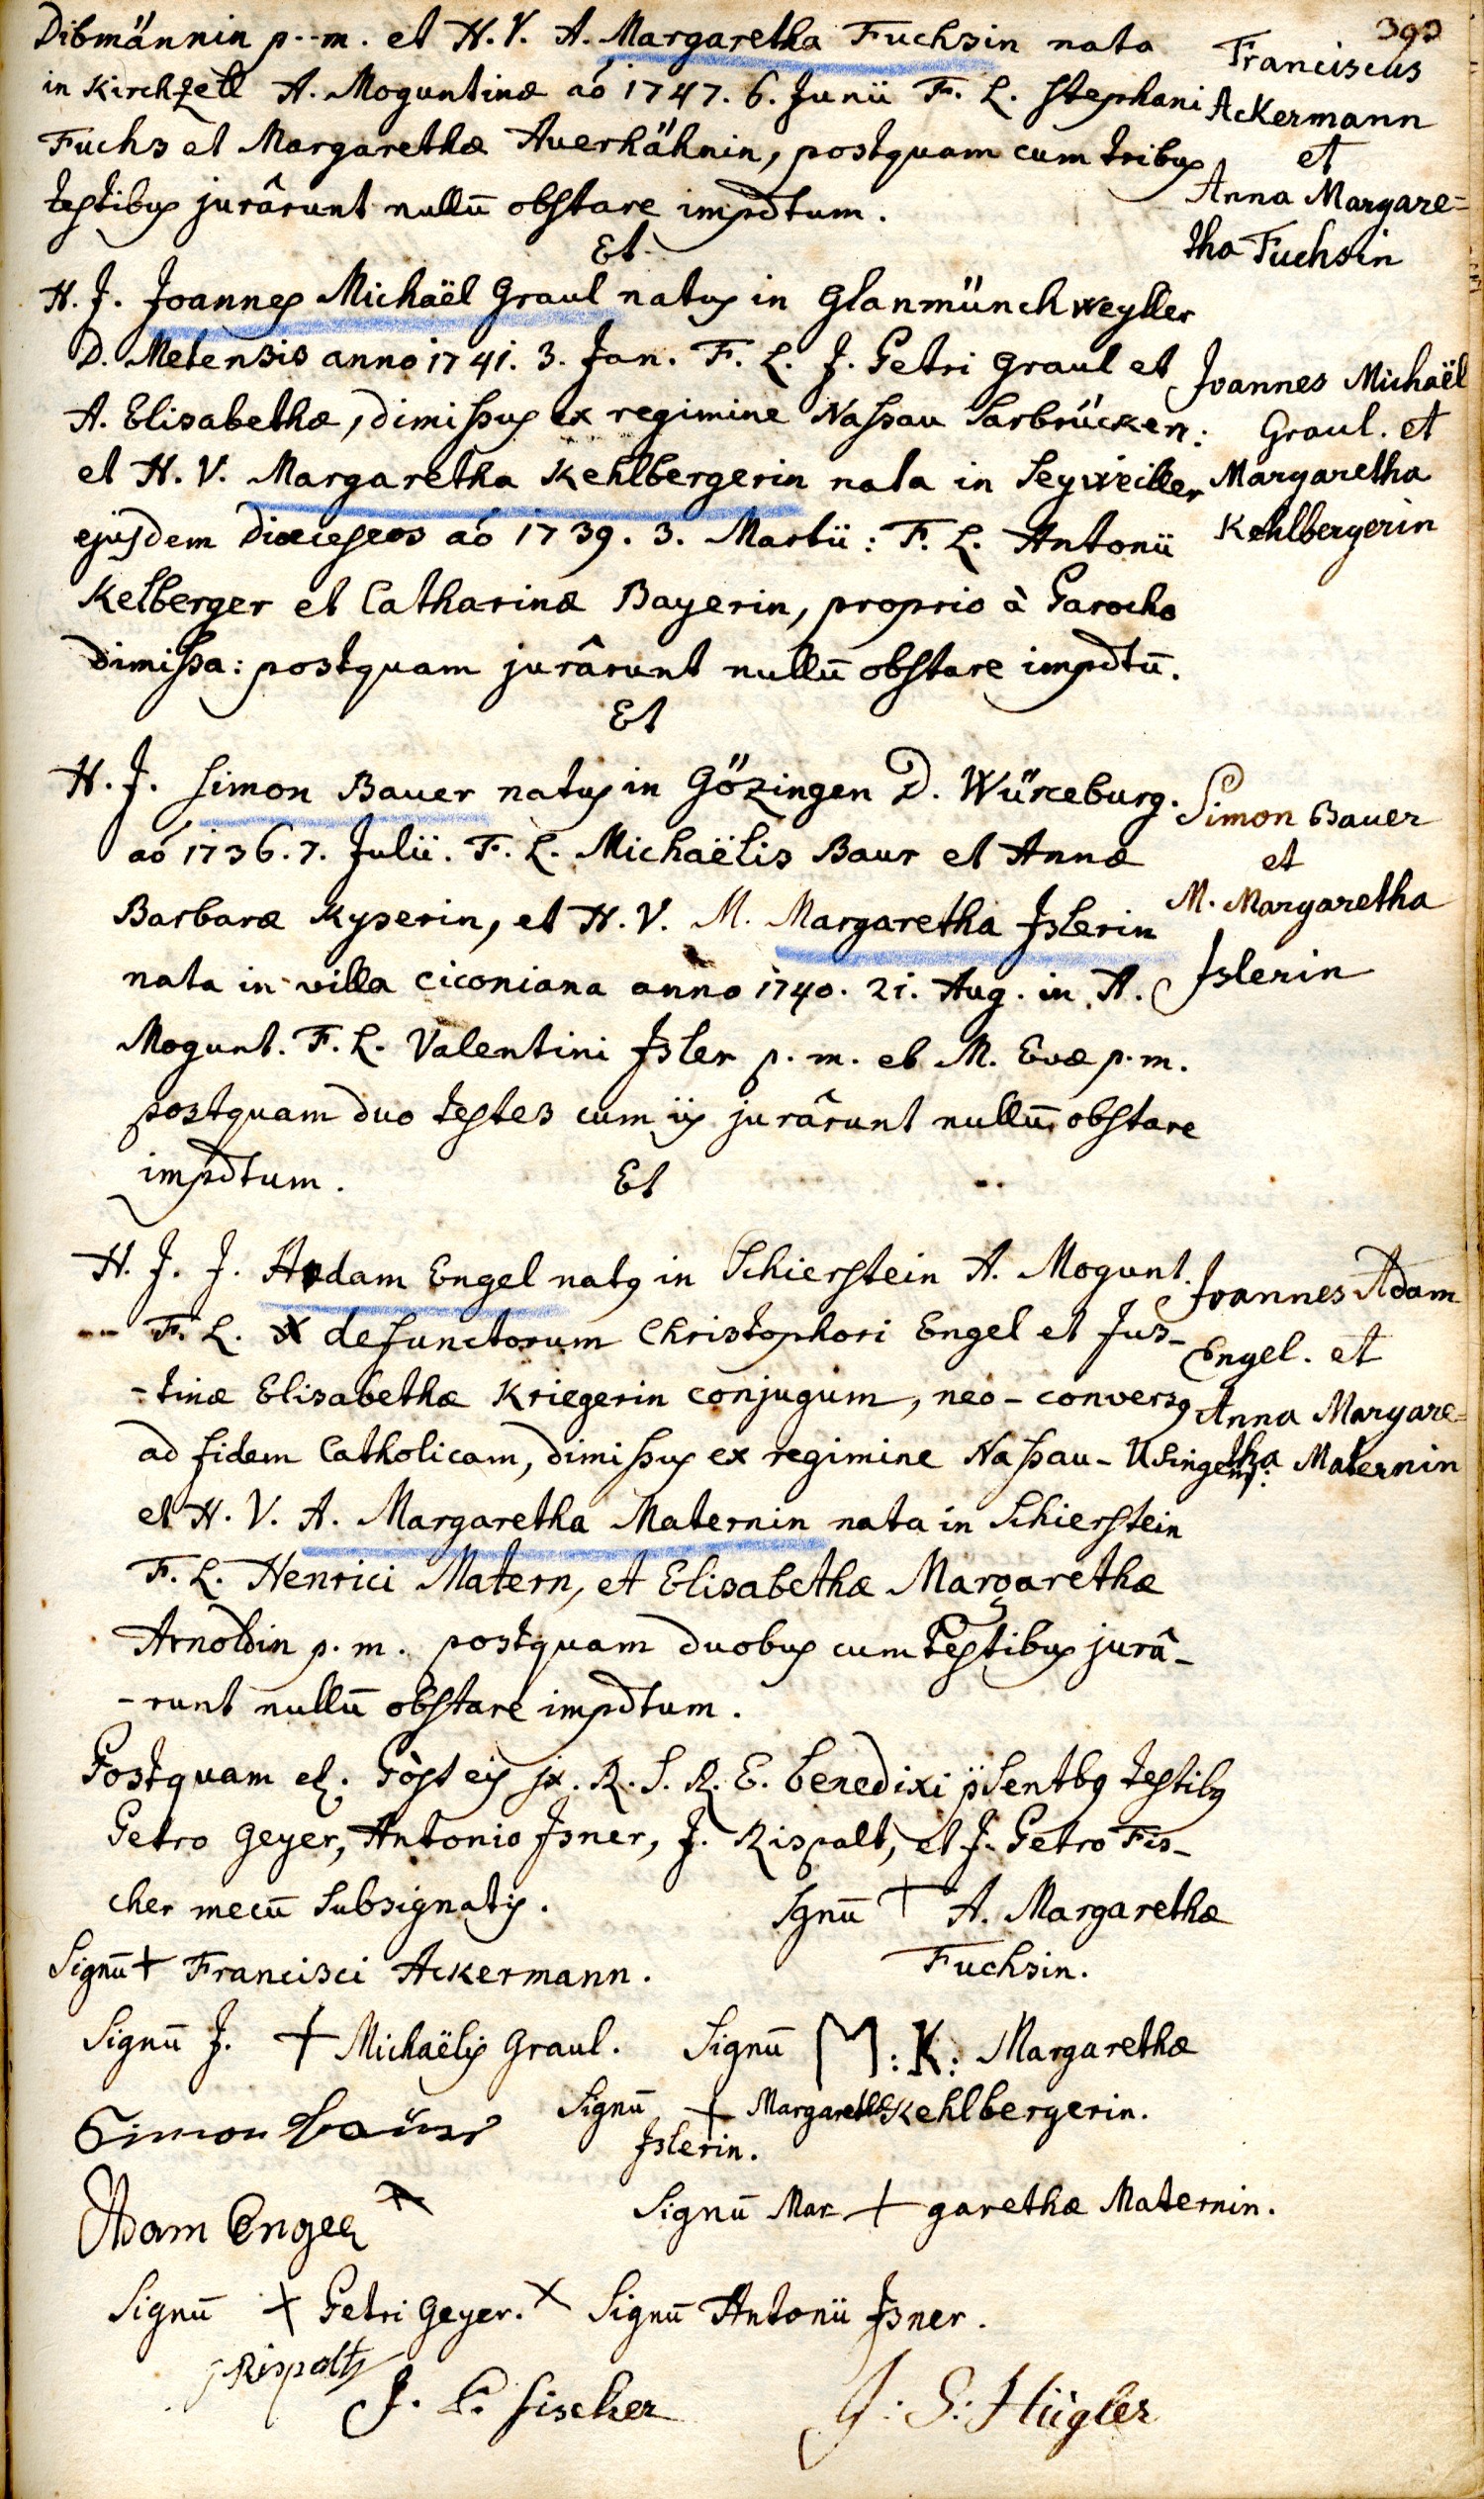 393
Dibmännin p--m. et H. V. A. Margaretha Fuchsin nata
in Kirchzell A. Moguntinæ aó 1747. 6. Junii F. L. Stephani
Fuchs et Margarethæ Auerhähnin, postquam cum tribus
testibus jurârunt nullū obstare impdtum.
Franciscus
Ackermann
et
Anna Margare=
tha Fuchsin
Et
H. J. Joannes Michaël Graul natus in Glanmünchweyller
D. Metensis anno 1741. 3. Jan. F. L. J. Petri Graul et
A. Elisabethæ, dimissus ex regimine Nassau Sarbrücken:
et H. V. Margaretha Kehlbergerin nata in Seyweiller
ejusdem Diœceseos aó 1739. 3. Martii: F. L. Antonii
Kelberger et Catharinæ Bayerin, proprio à Parocho
dimissa: postquam jurârunt nullū obstare impdtū.
Joannes Michaël
Graul. et
Margaretha
Kehlbergerin
Et
H. J. Simon Bauer natus in Gözingen D. Würceburg.
aó 1736. 7. Julii. F. L. Michaëlis Baur et Annæ
Barbaræ Kyserin, et H. V. M. Margaretha Jslerin
nata in villa ciconiana anno 1740. 21. Aug. in A.
Mogunt. F. L. Valentini Jsler p. m. et M. Evæ p. m.
postquam duo testes cum iis jurârunt nullū obstare
impdtum.
Simon Bauer
et
M. Margaretha
Jslerin
Et
H. J. J. Adam Engel natq in Schierstein A. Mogunt.
-- F. L. defunctorum Christophori Engel et Jus-
-tinæ Elisabethæ Kriegerin conjugum, neo-conversq
ad fidem Catholicam, dimissus ex regimine Nassau-Usingens:
et H. V. A. Margaretha Maternin nata in Schierstein
F. L. Henrici Matern, et Elisabethæ Margarethæ
Arnoldin p. m. postquam duobus cum testibus jurâ-
-runt nullū obstare impdtum.
Joannes Adam
Engel. et
Anna Margare=
tha Maternin
Postquam eis R. S. R. E. benedixi p̈sentbq testibq
Petro Geyer, Antonio Jsner, J. Rispalt, et J. Petro Fis-
cher mecū subsignatis.
Sgnū + A. Margarethæ
Fuchsin.
Signū + Francisci Ackermann.
Signū J. + Michaëlis Graul.
Signū M:K: Margarethæ
Kehlbergerin.
Simon bauer
Signū + Margarethæ
Jslerin.
Adam Engel
Signū Mar + garethæ Maternin.
Signū + Petri Geyer. x Signū Antonii Jsner.
J Rispalts
J. P. fischer
J: S: Hügler